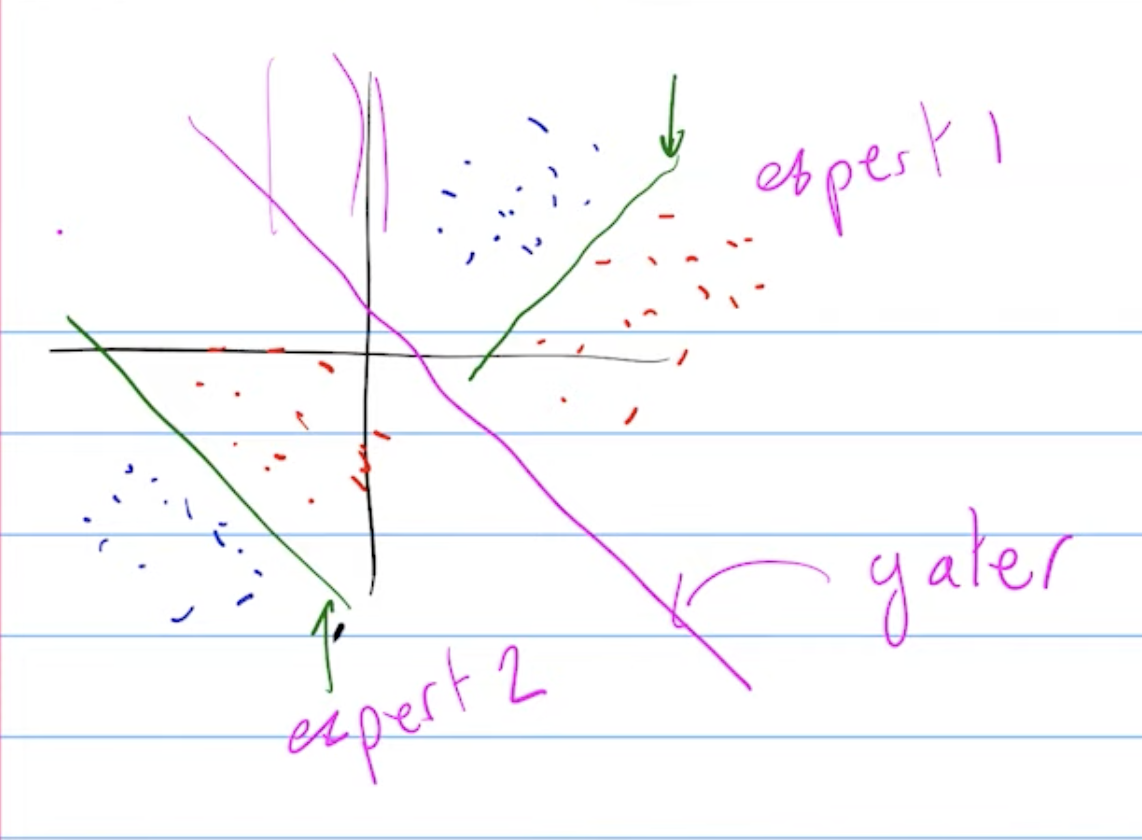 expert 1
gater
expert 2